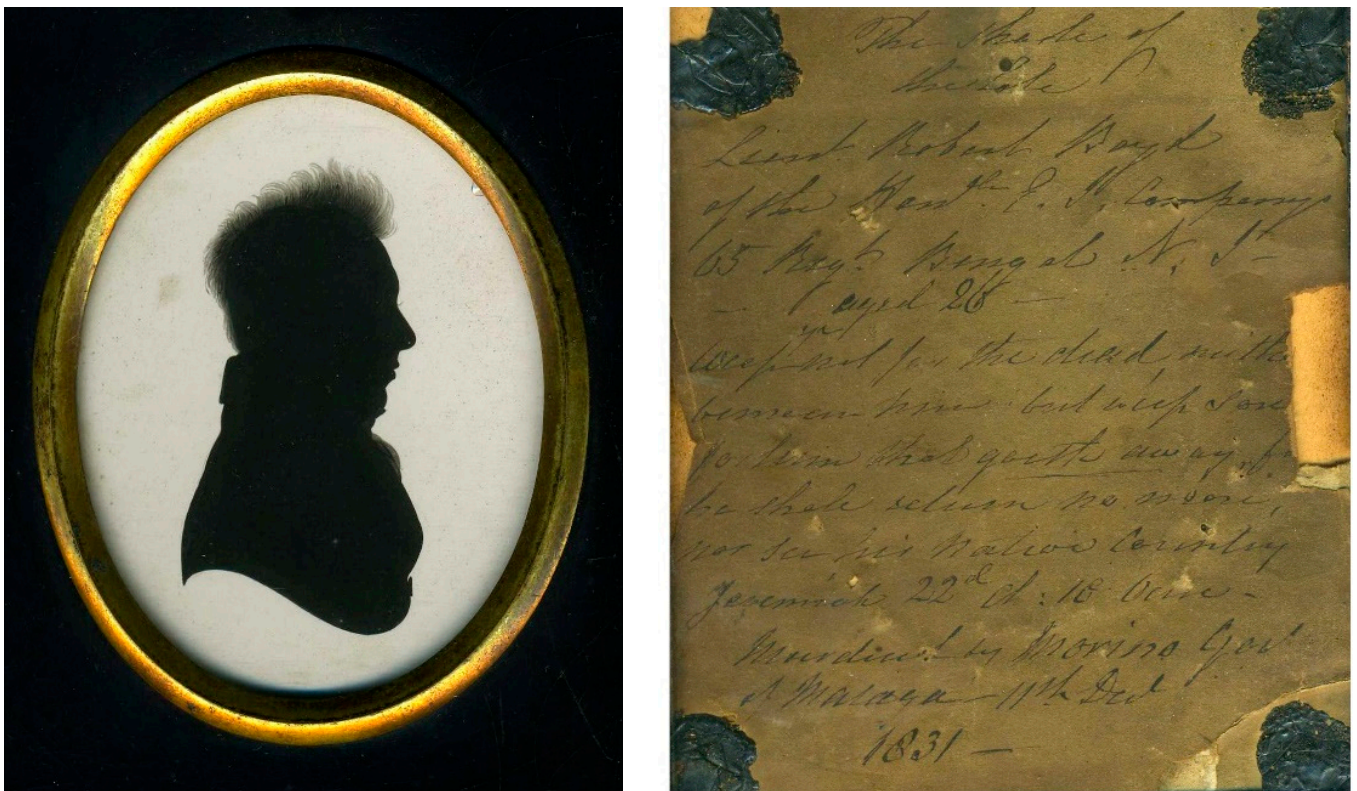 The Shade of
the Late
Lieut. Robert Boyd
of the Honble. E. I. Company's
65 Regt. Bengal N. I.
— aged 26 —
weep ye not for the dead, neither
bemoan him but weep sore
for him that goeth away, for
he shall return no more,
nor see his native Country
Jeremiah 22d ch: 10 Verse -
Murdered by Moreno Govr
of Malaga 11th Decr
1831 —